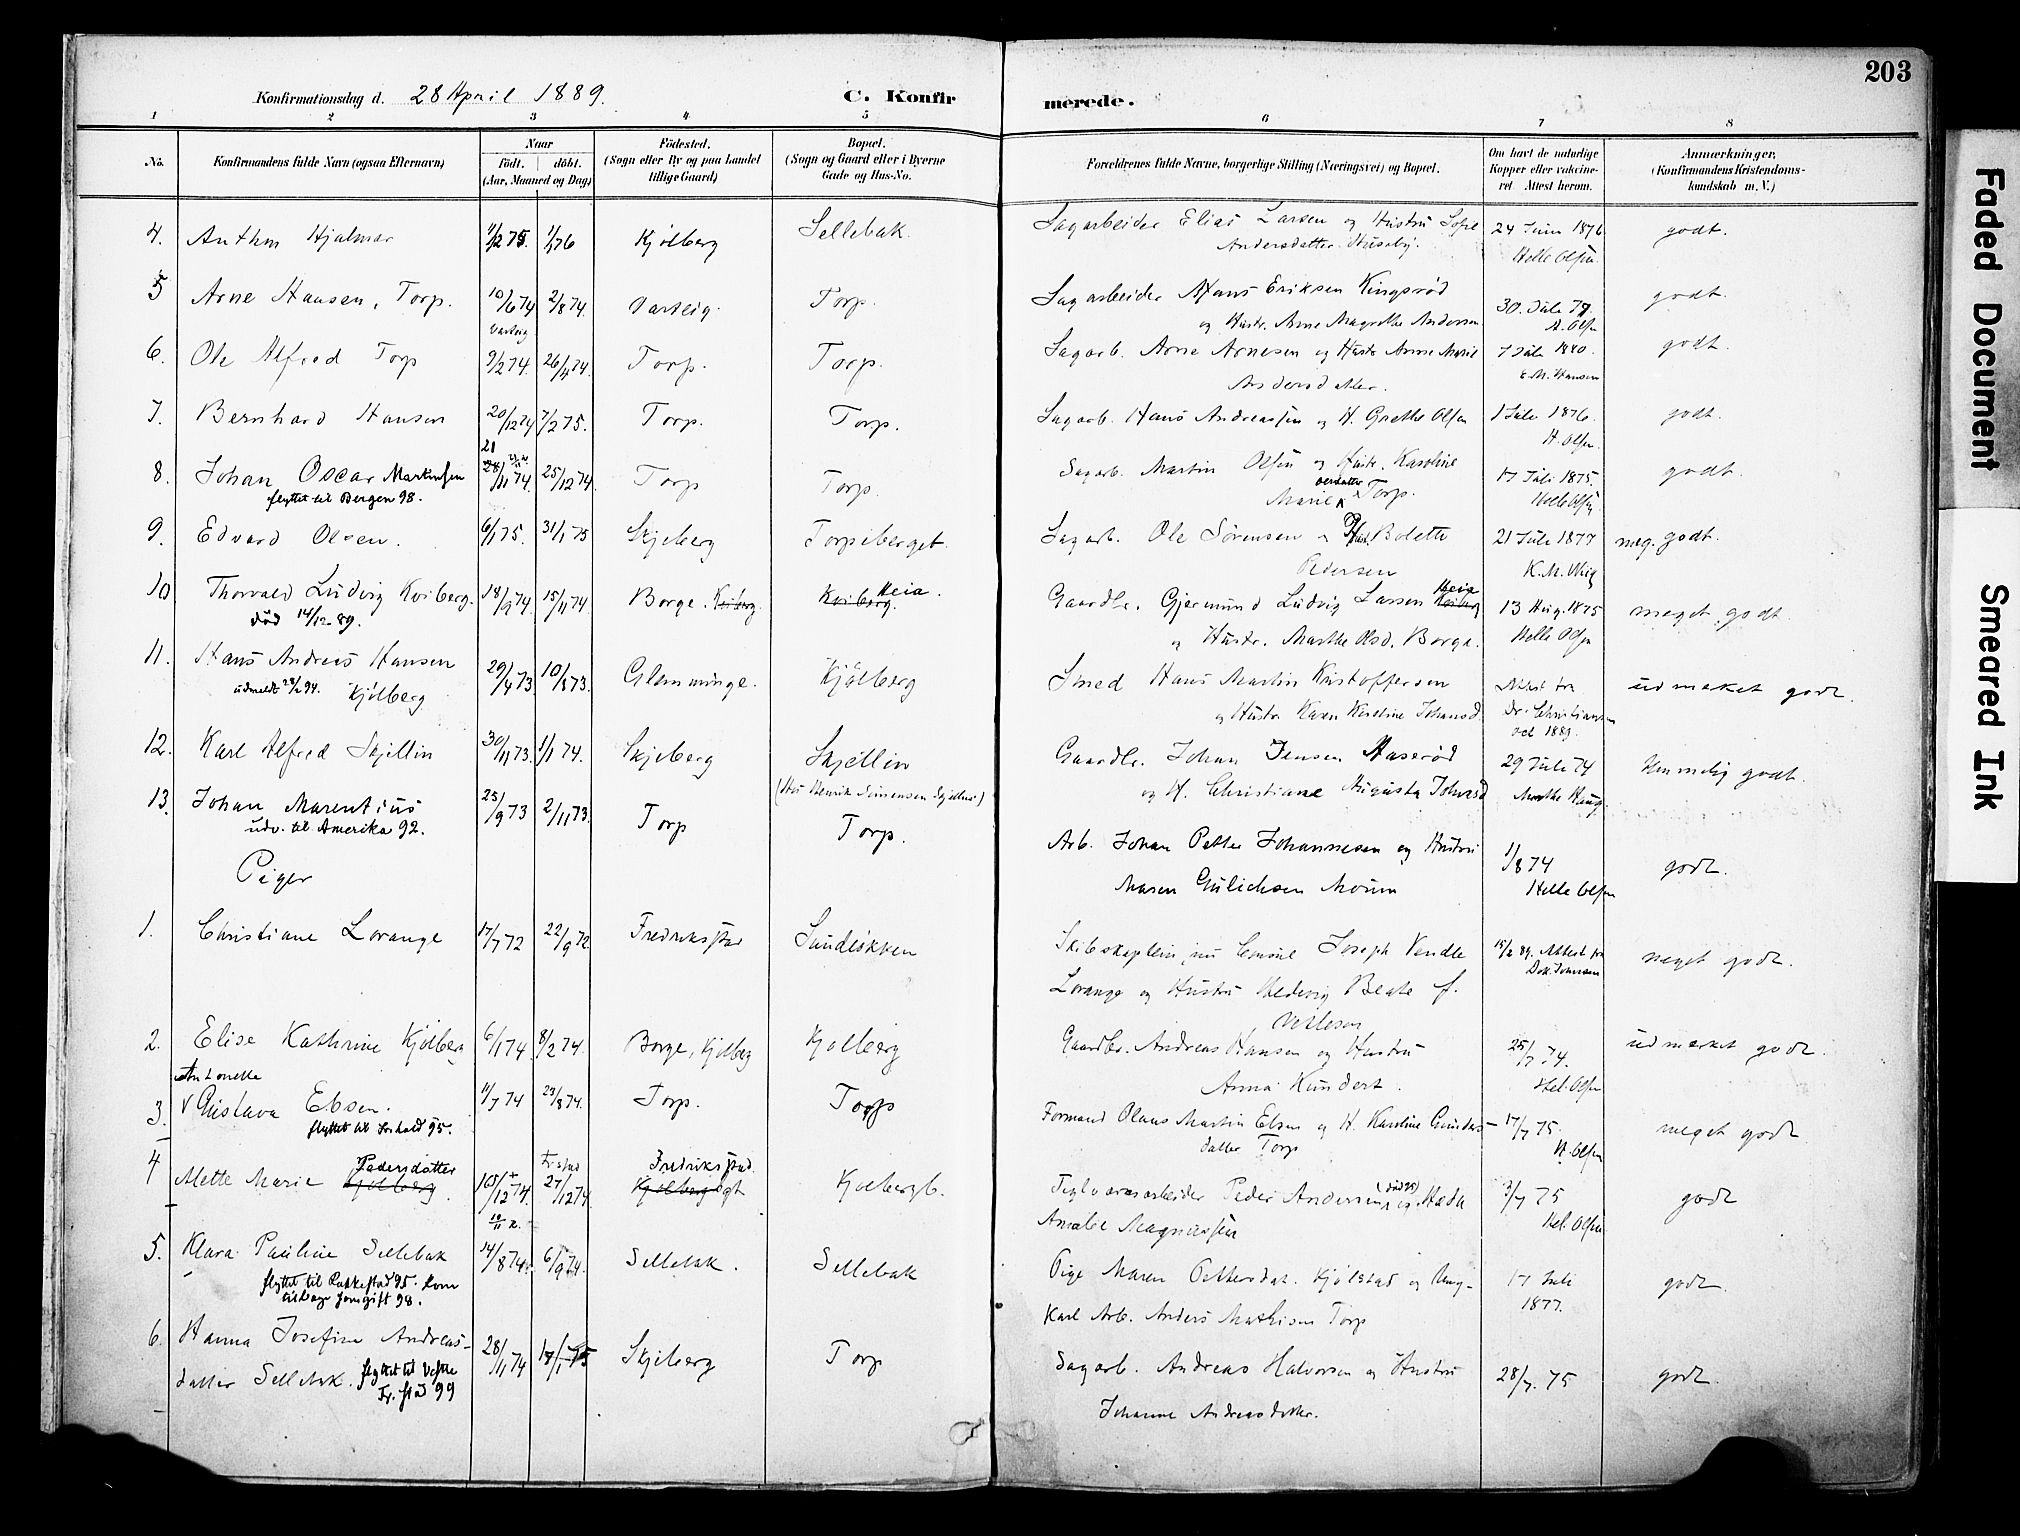 203
Konfirmationsdag d. 28 April 1889.
C. Konfirmerede.
1 2 3 4 5 6 7 8
No.
Konfirmandens fulde Navn (ogsaa Efternavn)
Naar
født. døbt.
(Aar, Maaned og Dag)
Fødested.
(Sogn eller By og paa Landet
tillige Gaard)
Bopæl.
(Sogn og Gaard eller i Byerne
Gade og Hus-No.
Forældrenes fulde Navne, borgerlige Stilling (Næringsvei) og Bopæl.
Om havt de naturlige
Kopper eller vakcine-
ret Attest herom.
Anmærkninger,
(Konfirmandens Kristendoms-
kundskab m. V.)
4. Anthon Hjalmar 11/12 75. 1/1 76 Kjølberg Sellebak. Sagarbeider Elias Larsen og Hustru Sofie 24 Juni 1876 godt.
Andersdatter Huseby. Helle Olsen.
5 Arne Hansen, Torp. 10/6 74 2/8 74. Varteig. Torp. Sagarbeider Hans Eriksen Kingsrød 30. Juli 77 godt.
Varteig og Hustr. Anne Magrethe Andersen H. Olsen
6. Ole Alfred Torp 9/2 74. 26/4 74. Torp. Torp. Sagarb. Arne Arnesen og Hustr Anne Marie 7 Juli 1880. godt.
Andersdatter. E. M. Hansen
7. Bernhard Hansen 20/12 74 7/2 75. Torp. Torp. Sagarb. Hans Andreassen og H. Grethe Olsen 1 Juli 1876. godt.
H. Olsen.
8. Johan Oscar Martinsen 28/11 74. 25/12 74. Torp Torp. Sagarb. Martin Olsen og Hustr. Karoline 17 Juli 1875. godt.
21
flyttet til Bergen 98. Marie Torp. Helle Olsen
9. Edvard Olsen. 6/1 75. 31/1 75 Skjeberg Torpeberget. Sagarb. Ole Sørensen Bolette 21 Juli 1877 meg. godt.
Pedersen K. M. Wiig
10 Thorvald Ludvig Kviberg. 18/9 74. 15/11 74. Borge. Kviberg. Kviberg. Heia. Gaardbr. Gjermund Ludvig Larsen Kviberg Heia 13 Aug. 1875 meget godt.
død 14/12 89. og Hustr. Marthe Olsd. Borge. Helle Olsen
11. Hans Andreas Hansen 29/4 73 10/8 73. Glemminge. Kjølberg Smed Hans Martin Kristoffersen Attest fra udmærket godt.
udmeldt 28/2 94. Kjølberg og Hustr. Karen Karoline Johansd. Dr. Christiansen
oct 1881.
12. Karl Alfred Skjellin 30/11 73. 1/1 74. Skjeberg Skjellin Gaardbr. Johan Jensen Haserød 29 Juli 74 temmelig godt.
(Hos Henrik Sørensen Skjellin) og H. Christiane Augusta Johansd Marthe Haug.
13. Johan Marentius 25/9 73 2/11 73. Torp Torp. Arb. Johan Petter Johannesen og Hustru 1/8 74 godt.
udv. til Amerika 92. Maren Gulichsen Moum Helle Olsen
Piger
1. Christiane Lorange 17/7 72 22/9 72 Fredriksstad Sundløkken Skibskaptein, nu Consul Joseph Vendle 15/2 89. Attest fra meget godt.
Lorange og Hustru Hedevig Beate f. Dok. Johnsen
Vetlesen
2. Elise Kathrine Kjølberg 6/1 74 8/2 74. Borge, Kjølberg Kjølberg Gaardbr. Andreas Hansen og Hustru 25/7 74. udmærket godt.
Anna Kundert. Hel. Olsen
Antonette
3. Gustava Ebsen. 11/7 74 23/8 74. Torp. Torp Formand Olaus Martin Ebsen og H. Karoline Gunders- 17/7 75. meget godt.
flyttet til 95. datter Torp H. Olsen
4 Mette Marie Kjølberg Pedersdatter 12 74. 27/12 74. Fr.stad Fredriksstad. Kjølbergb. Teglværksarbeider Peder Andersen (død 75) og Hæda 3/7 75 godt
Amalie Magnussen Hel. Olsen
5. Klara Pauline Sellebak 14/8 74. 6/9 74. Sellebak. Sellebak Pige Maren Pettersdat. Kjølstad og Ung- 17 Juli godt.
flyttet til Rakkestad 95. kom Karl Arb. Anders Mathisen Torp 1877.
tilbage som gift 98.
6. Hanna Josefine Andreas- 28/11 74 17/1 75 Skjeberg Torp Sagarb. Andreas Halvorsen og Hustru 28/7. 75 godt.
datter Sellebak. flyttet til Vestre Johanne Andreasdatter.
Fr.stad 99
Faded Document
Smeared Ink